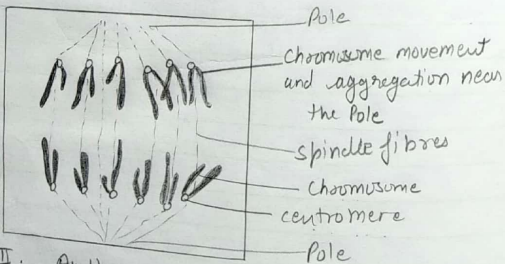 Pole
Chromosome movement
and aggregation near
the Pole
spindle fibres
Chromosome
centromere
Pole
II.